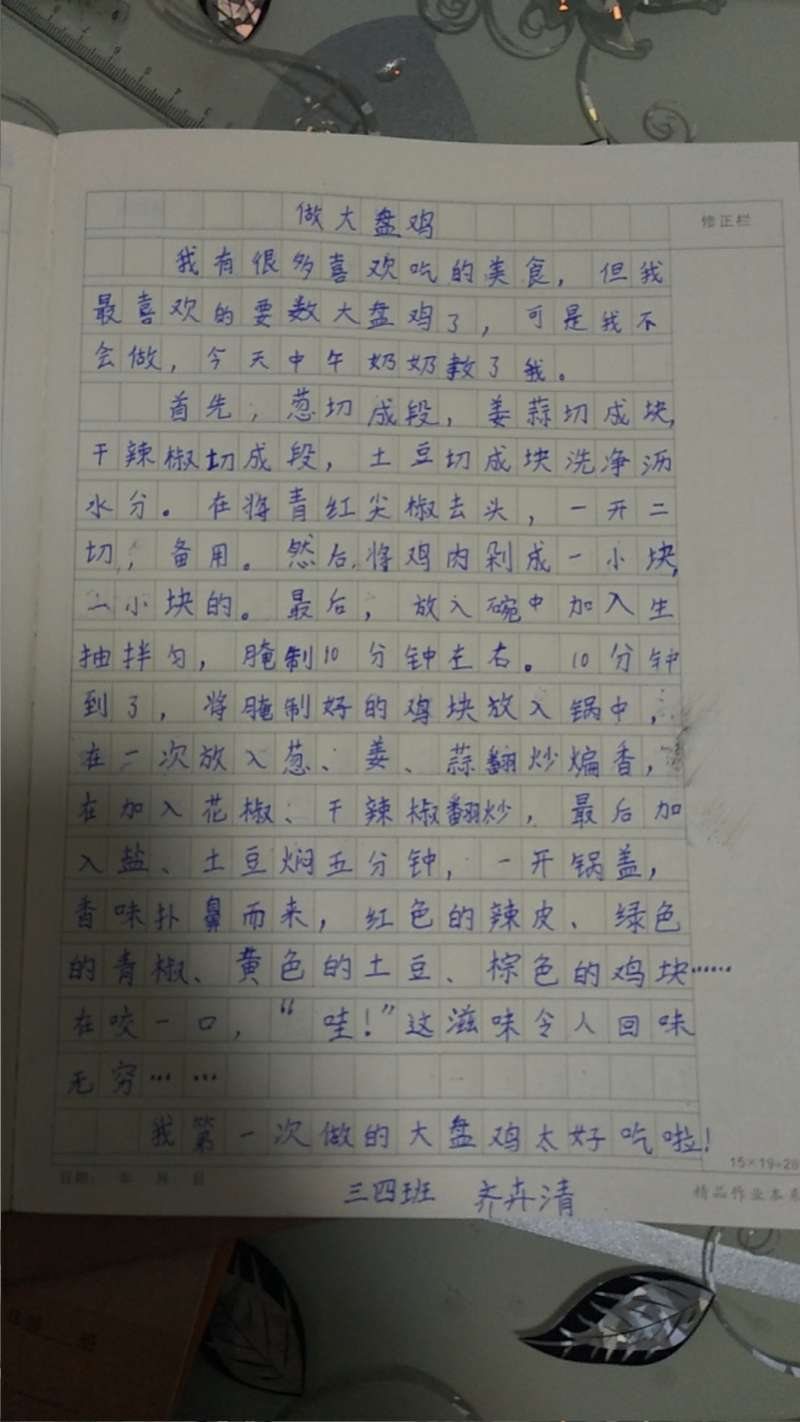 做大盘鸡
修正栏
我有很多喜欢吃的美食，但我
最喜欢的要数大盘鸡了，可是我不
会做，今天中午奶奶教了我。
首先，葱切成段，姜蒜切成块，
干辣椒切成段，土豆切成块洗净沥
水分。在将青红尖椒去头，一开二
切，备用。然后，将鸡肉剁成一小块，
一小块的。最后，放入碗中加入生
抽拌匀，腌制10分钟左右。10分钟
到了，将腌制好的鸡块放入锅中，
在一次放入葱、姜、蒜翻炒煸香，
在加入花椒、干辣椒翻炒，最后加
入盐、土豆焖五分钟，一开锅盖，
香味扑鼻而来，红色的辣皮、绿色
的青椒、黄色的土豆、棕色的鸡块……
在咬一口，“哇！”这滋味令人回味
无穷……
我第一次做的大盘鸡太好吃啦！
日期： 年 月 日
15×19=28
三四班 齐卉清
精品作业本系